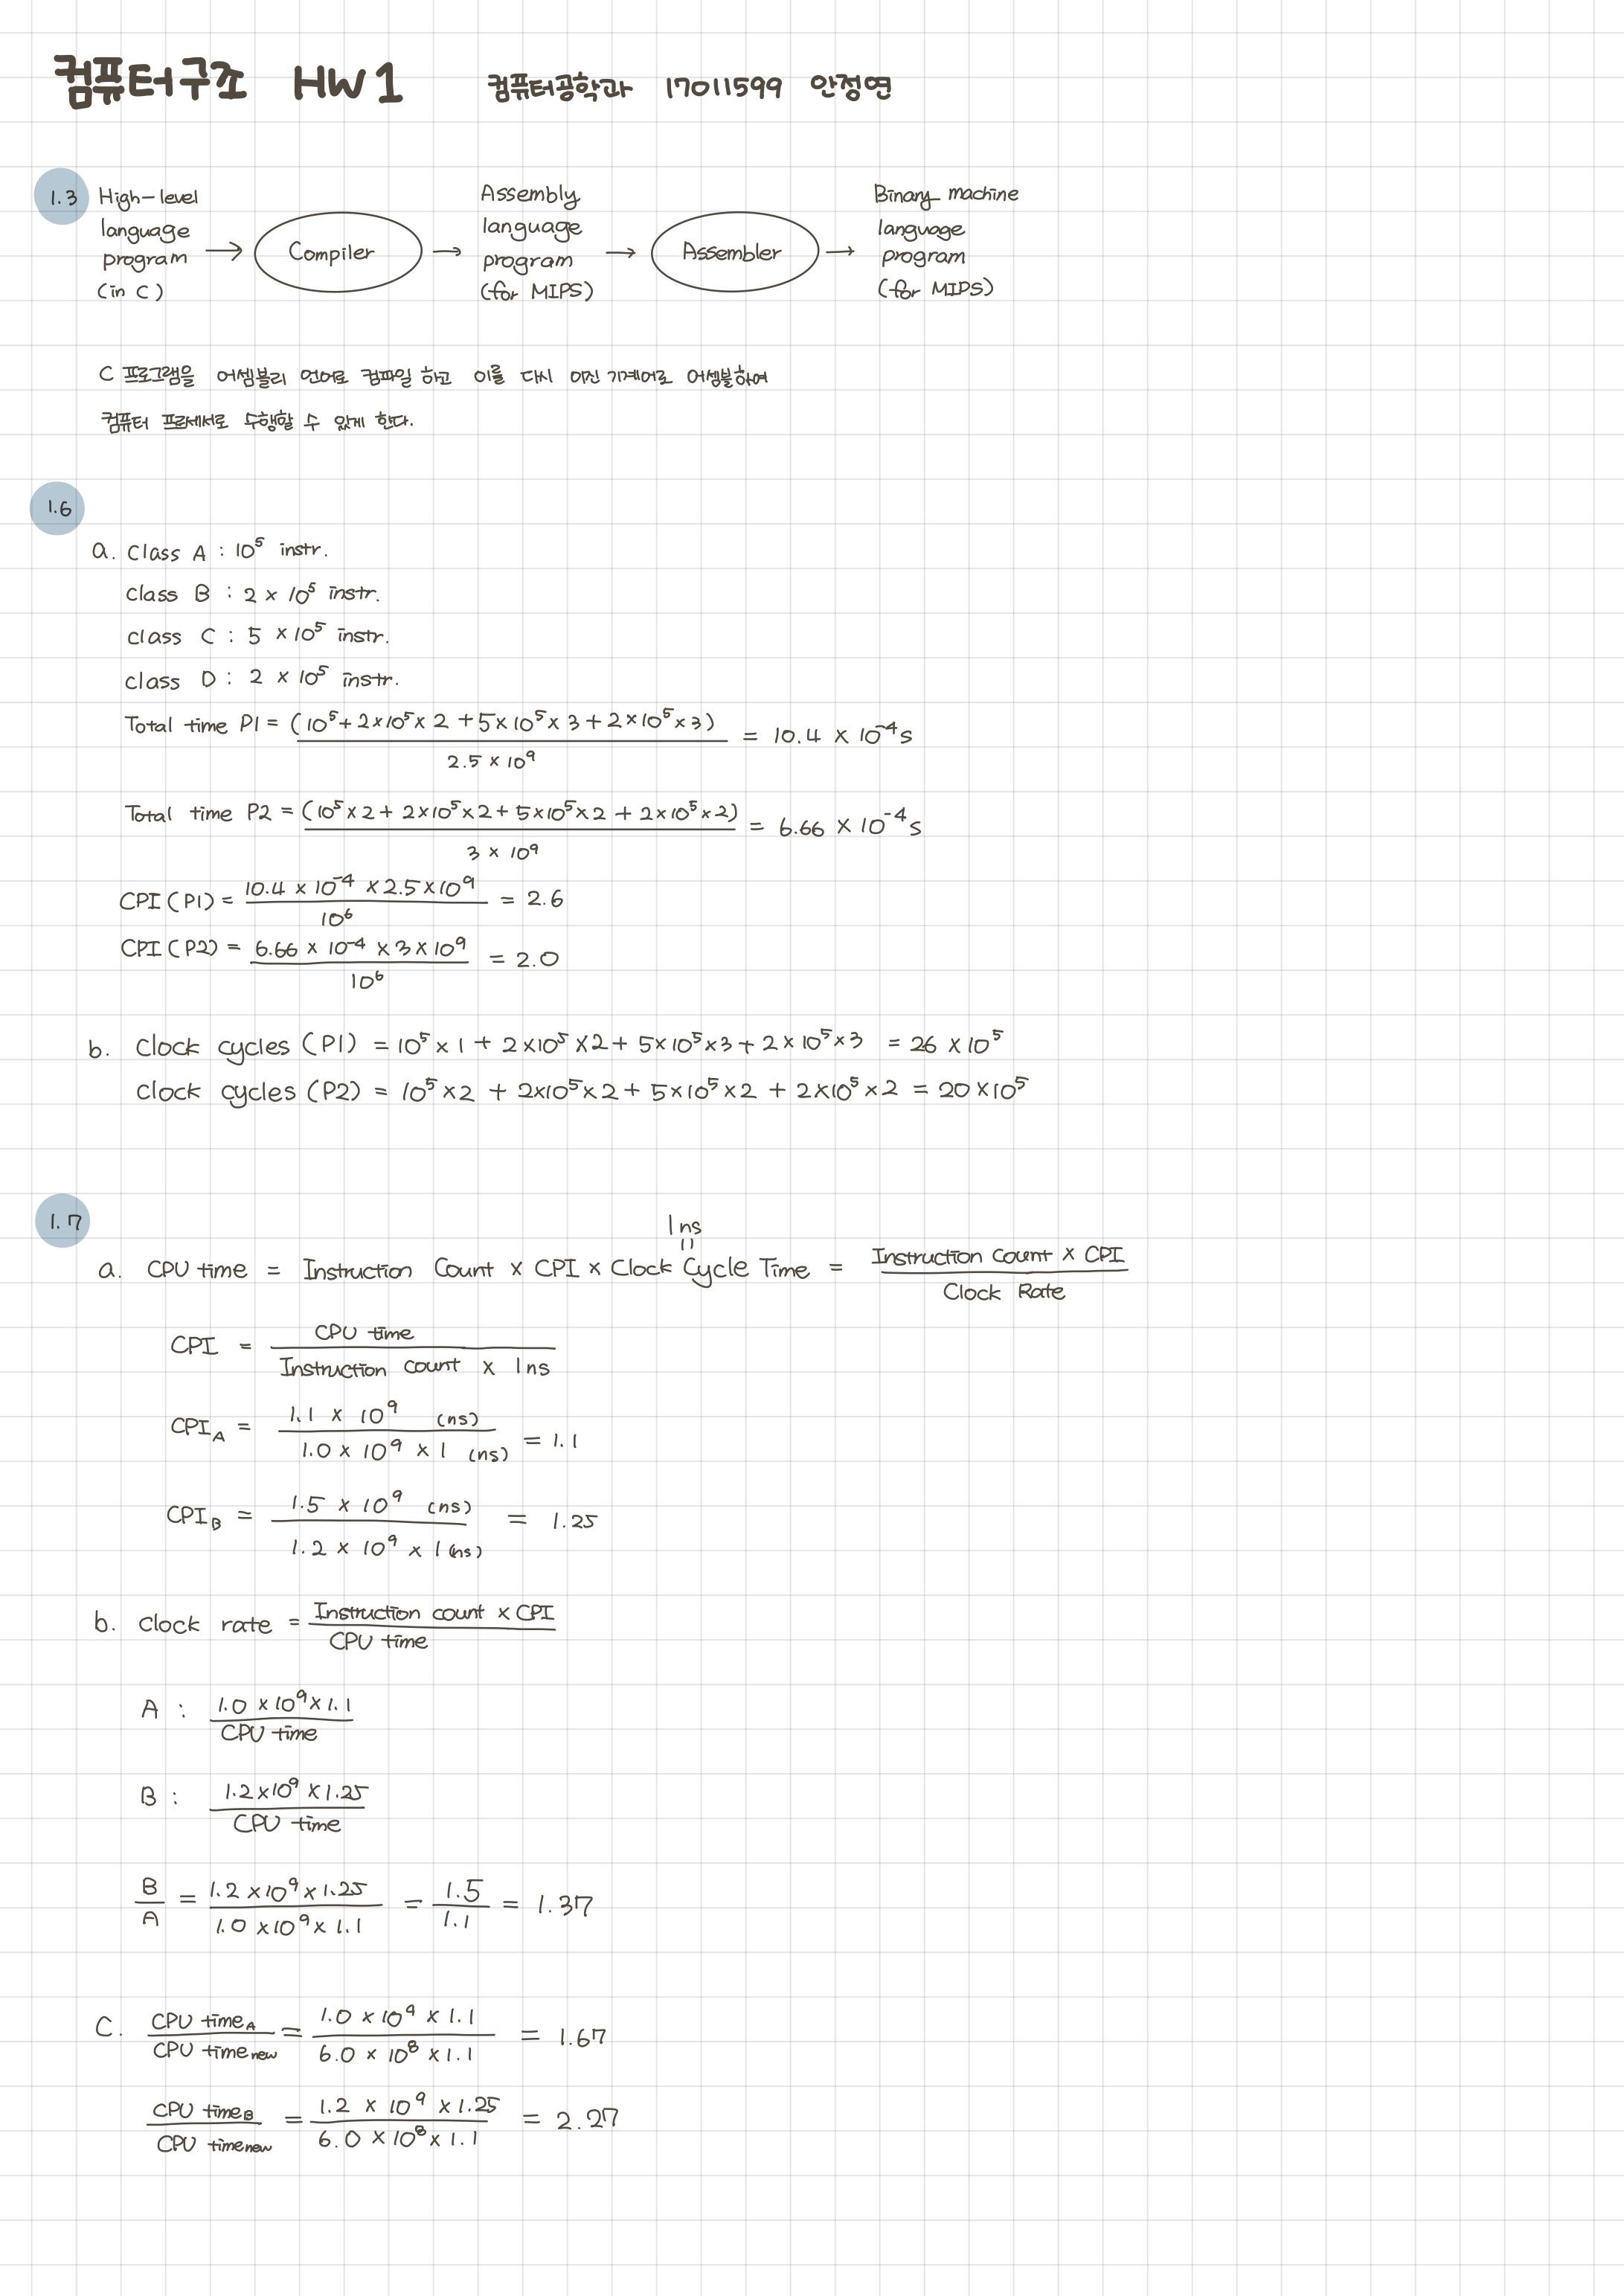 컴퓨터구조 HW1 컴퓨터공학과 17011599 안정연
1.3
High-level language program (in C) → Compiler → Assembly language program (for MIPS) → Assembler → Binary machine language program (for MIPS)
C 프로그램을 어셈블리 언어로 컴파일 하고 이를 다시 이진 기계어로 어셈블하여
컴퓨터 프로세서로 수행할 수 있게 한다.
1.6
a. Class A : 10⁵ instr.
class B : 2 × 10⁵ instr.
class C : 5 × 10⁵ instr.
class D : 2 × 10⁵ instr.
Total time P1 = (10⁵ + 2×10⁵ × 2 + 5×10⁵ × 3 + 2×10⁵ × 3) / 2.5 × 10⁹ = 10.4 × 10⁻⁴ s
Total time P2 = (10⁵ × 2 + 2×10⁵ × 2 + 5×10⁵ × 2 + 2×10⁵ × 2) / 3 × 10⁹ = 6.66 × 10⁻⁴ s
CPI (P1) = 10.4 × 10⁻⁴ × 2.5 × 10⁹ / 10⁶ = 2.6
CPI (P2) = 6.66 × 10⁻⁴ × 3 × 10⁹ / 10⁶ = 2.0
b. Clock cycles (P1) = 10⁵ × 1 + 2×10⁵ × 2 + 5×10⁵ × 3 + 2×10⁵ × 3 = 26 × 10⁵
Clock cycles (P2) = 10⁵ × 2 + 2×10⁵ × 2 + 5×10⁵ × 2 + 2×10⁵ × 2 = 20 × 10⁵
1.7
1ns
=
a. CPU time = Instruction Count × CPI × Clock Cycle Time = Instruction Count × CPI / Clock Rate
CPI = CPU time / Instruction count × 1ns
CPI_A = 1.1 × 10⁹ (ns) / 1.0 × 10⁹ × 1 (ns) = 1.1
CPI_B = 1.5 × 10⁹ (ns) / 1.2 × 10⁹ × 1 (ns) = 1.25
b. Clock rate = Instruction count × CPI / CPU time
A : 1.0 × 10⁹ × 1.1 / CPU time
B : 1.2 × 10⁹ × 1.25 / CPU time
B / A = 1.2 × 10⁹ × 1.25 / 1.0 × 10⁹ × 1.1 = 1.5 / 1.1 = 1.37
C. CPU time_A / CPU time_new = 1.0 × 10⁹ × 1.1 / 6.0 × 10⁸ × 1.1 = 1.67
CPU time_B / CPU time_new = 1.2 × 10⁹ × 1.25 / 6.0 × 10⁸ × 1.1 = 2.27